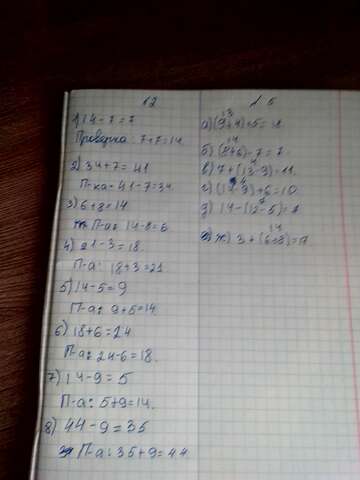 12
1) 14-7=7
Проверка: 7+7=14
2) 34+7=41
П-ка: 41-7=34
3) 6+8=14
П-а: 14-8=6
4) 21-3=18.
П-а: 18+3=21
5) 14-5=9
П-а: 9+5=14.
6) 18+6=24
П-а: 24-6=18.
7) 14-9=5
П-а: 5+9=14.
8) 44-9=35
П-а: 35+9=44
15
13
а) (9+4)-5=
14
б) (8+6)-7=7
в) 7+( -3)=11.
г) ( )+6=10
7
д) 14-(12-5)=7
14
ж) 3+(6+8)=17